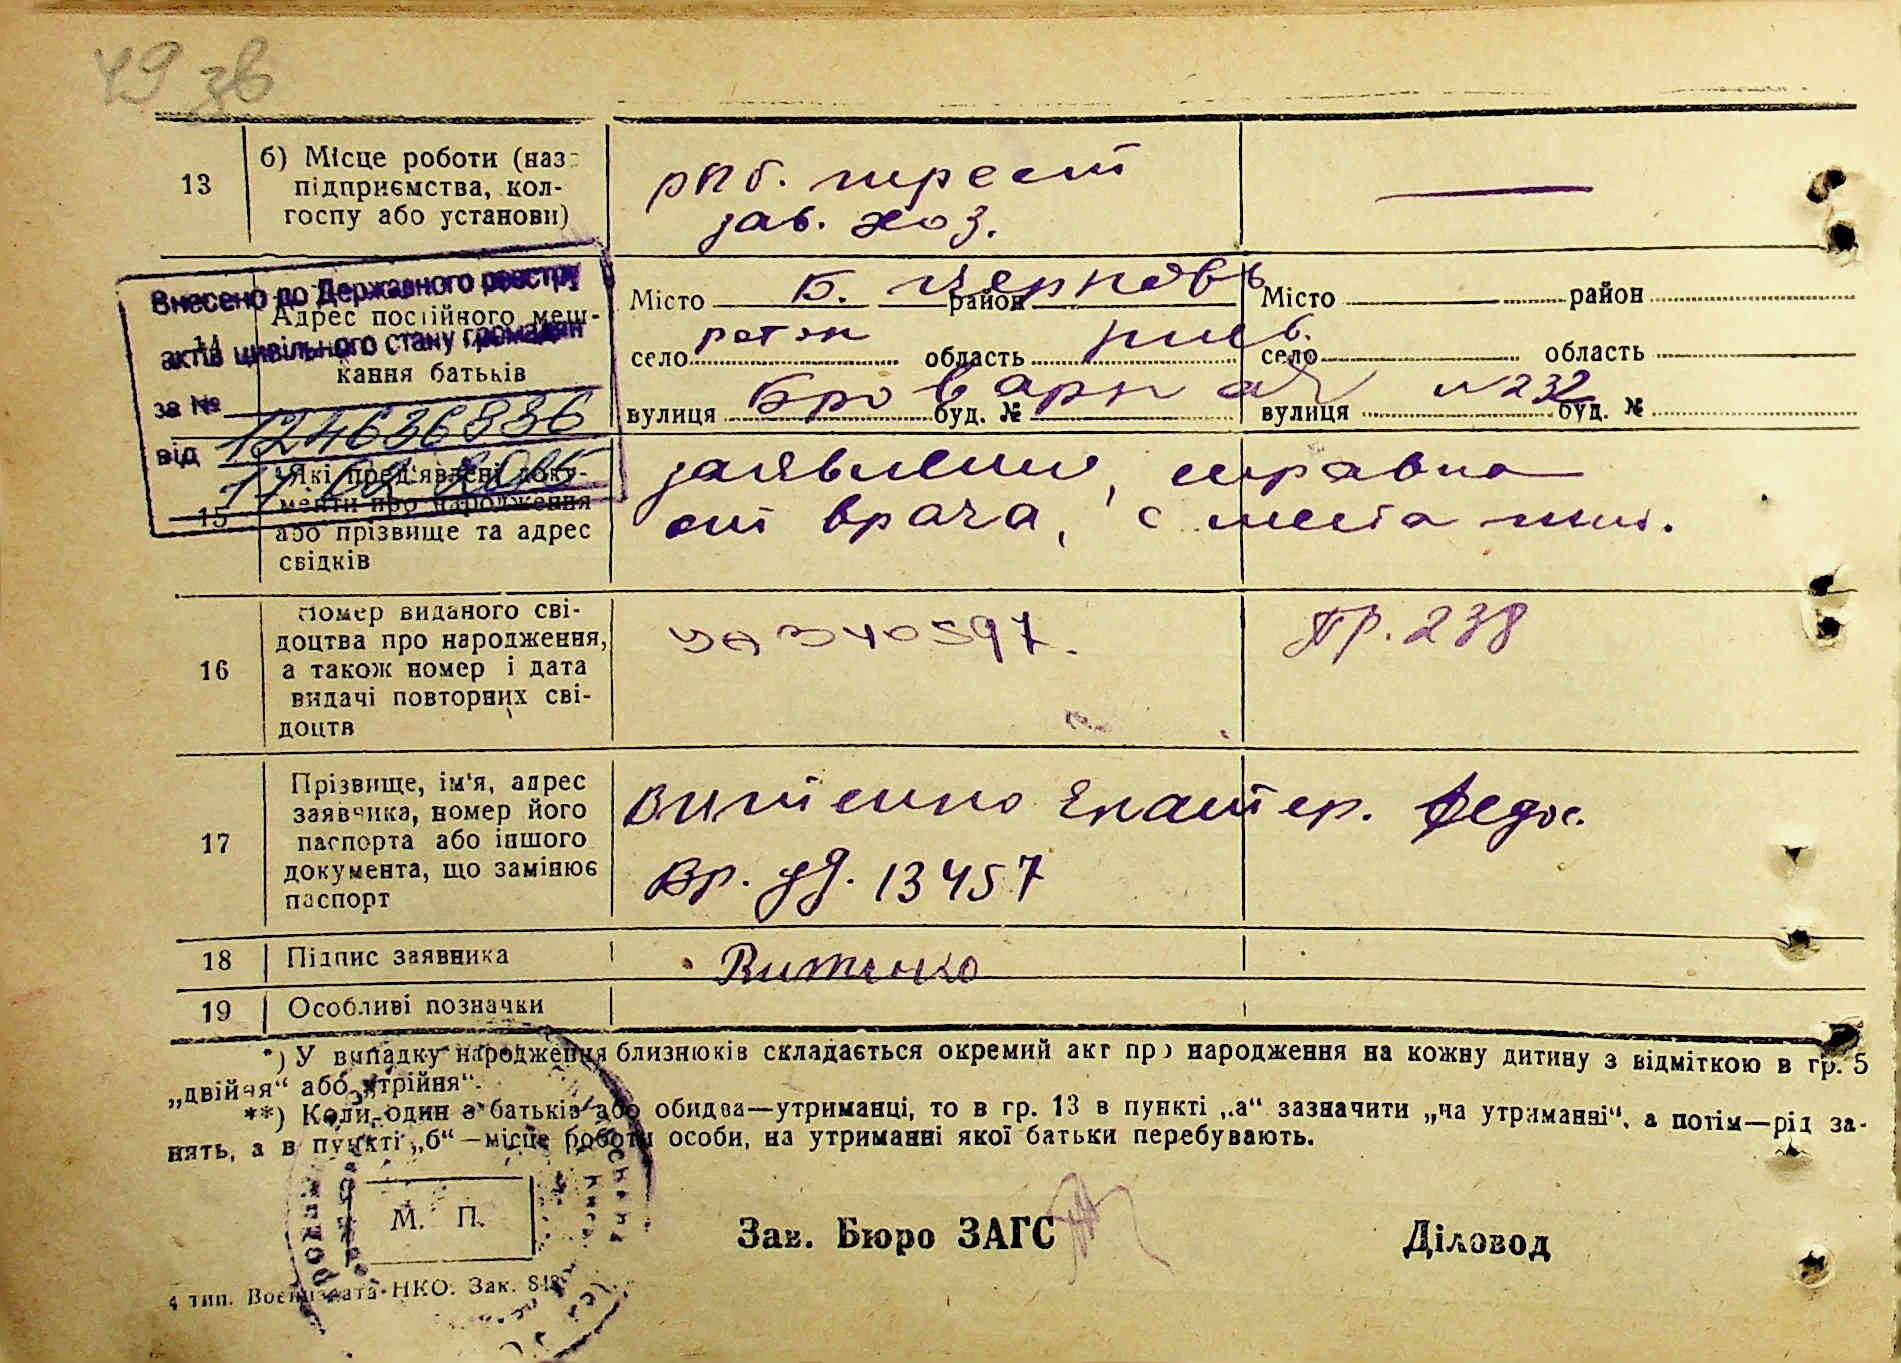 49 зв
13
б) Місце роботи (наз
підприємства, кол-
госпу або установи)
рыб. трест
зав. хоз.
Внесено до Державного реєстру
актів цивільного стану громадян
за №
124636836
від
14
Адрес постійного меш-
кання батьків
Місто Б. район
село область
вулиця Броварная буд. № N 232
Місто район
село область
вулиця буд. №
15
Які пред'явлені доку-
менти про народження
або прізвище та адрес
свідків
заявление, справка
от врача, с места жит.
16
Номер виданого сві-
доцтва про народження,
а також номер і дата
видачі повторних сві-
доцтв
340597.
Пр. 238
17
Прізвище, ім'я, адрес
заявника, номер його
паспорта або іншого
документа, що замінює
паспорт
Витенко Екатер. Федос.
Вр. уд. 13457
18
Підпис заявника
Витенко
19
Особливі позначки
*) У випадку народження близнюків складається окремий акт про народження на кожну дитину з відміткою в гр. 5
„двійня“ або „трійня“.
**) Коли один з батьків або обидва—утриманці, то в гр. 13 в пункті „а“ зазначити „на утриманні“, а потім—рід за-
нять, а в пункті „б“—місце роботи особи, на утриманні якої батьки перебувають.
М. П.
Зав. Бюро ЗАГС
Діловод
4 тип. Воениздата НКО. Зак. 848